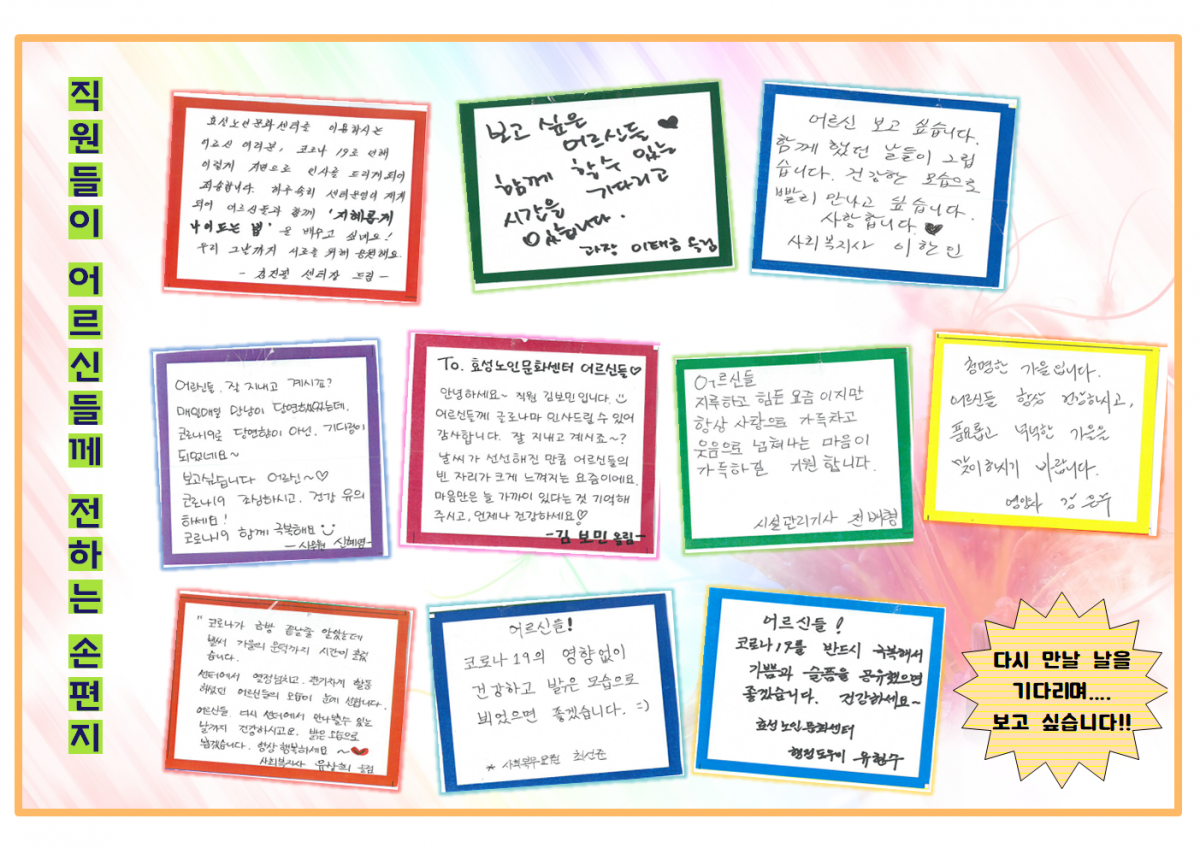 직원들이 어르신들께 전하는 손편지
효성노인문화센터를 이용하시는
어르신 여러분, 코로나 19로 인해
이렇게 지면으로 인사를 드리게 되어
죄송합니다. 하루 속히 센터운영이 재개
되어 어르신들과 함께 '지혜롭게
나이드는 법' 을 배우고 싶네요!
우리 그날까지 서로를 위해 응원해요.
센터장 드림 -
보고 싶은
어르신들 ♥
함께 할 수 있는
시간을 기다리고
있습니다.
과장 이태금 드림
어르신 보고 싶습니다.
함께 했던 날들이 그립
습니다. 건강한 모습으로
빨리 만나고 싶습니다.
사랑합니다. ♥
사회복지사 이한인
어르신들, 잘 지내고 계시죠?
매일매일 만남이 당연하였는데,
코로나19로 당연함이 아닌, 기다림이
되었네요~
보고싶습니다 어르신~♡
코로나19 조심하시고, 건강 유의
하세요!
코로나19 함께 극복해요
- 사회원 신혜영 -
To. 효성노인문화센터 어르신들♡
안녕하세요~ 직원 김보민입니다.
어르신들께 글로나마 인사드릴 수 있어
감사합니다. 잘 지내고 계시죠~?
날씨가 선선해진 만큼 어르신들의
빈 자리가 크게 느껴지는 요즘이에요.
마음만은 늘 가까이 있다는 것 기억해
주시고, 언제나 건강하세요♡
-김 보민 올림-
어르신들
지루하고 힘든 요즘 이지만
항상 사랑으로 가득차고
웃음으로 넘쳐나는 마음이
가득하길 기원 합니다.
시설관리기사
청명한 가을입니다.
어르신들 항상 건강하시고,
풍요롭고 넉넉한 가을을
맞이하시기 바랍니다.
영양사 김 은주
"코로나가 금방 끝날줄 알았는데
벌써 가을의 문턱까지 시간이 흘렀
습니다.
센터에서 열정넘치고, 활기차게 활동
하셨던 어르신들의 모습이 눈에 선합니다.
어르신들 다시 센터에서 만나뵐수 있는
날까지 건강하시고요. 밝은 모습으로
뵙겠습니다. 항상 행복하세요 ~ ♥
사회복지사 유상희 올림
어르신들!
코로나 19의 영향없이
건강하고 밝은 모습으로
뵈었으면 좋겠습니다. =)
* 사회복무요원 최선준
어르신들!
코로나19를 반드시 극복해서
기쁨과 슬픔을 공유했으면
좋겠습니다. 건강하세요~
효성노인문화센터
행정도우미 유현수
다시 만날 날을
기다리며....
보고 싶습니다!!